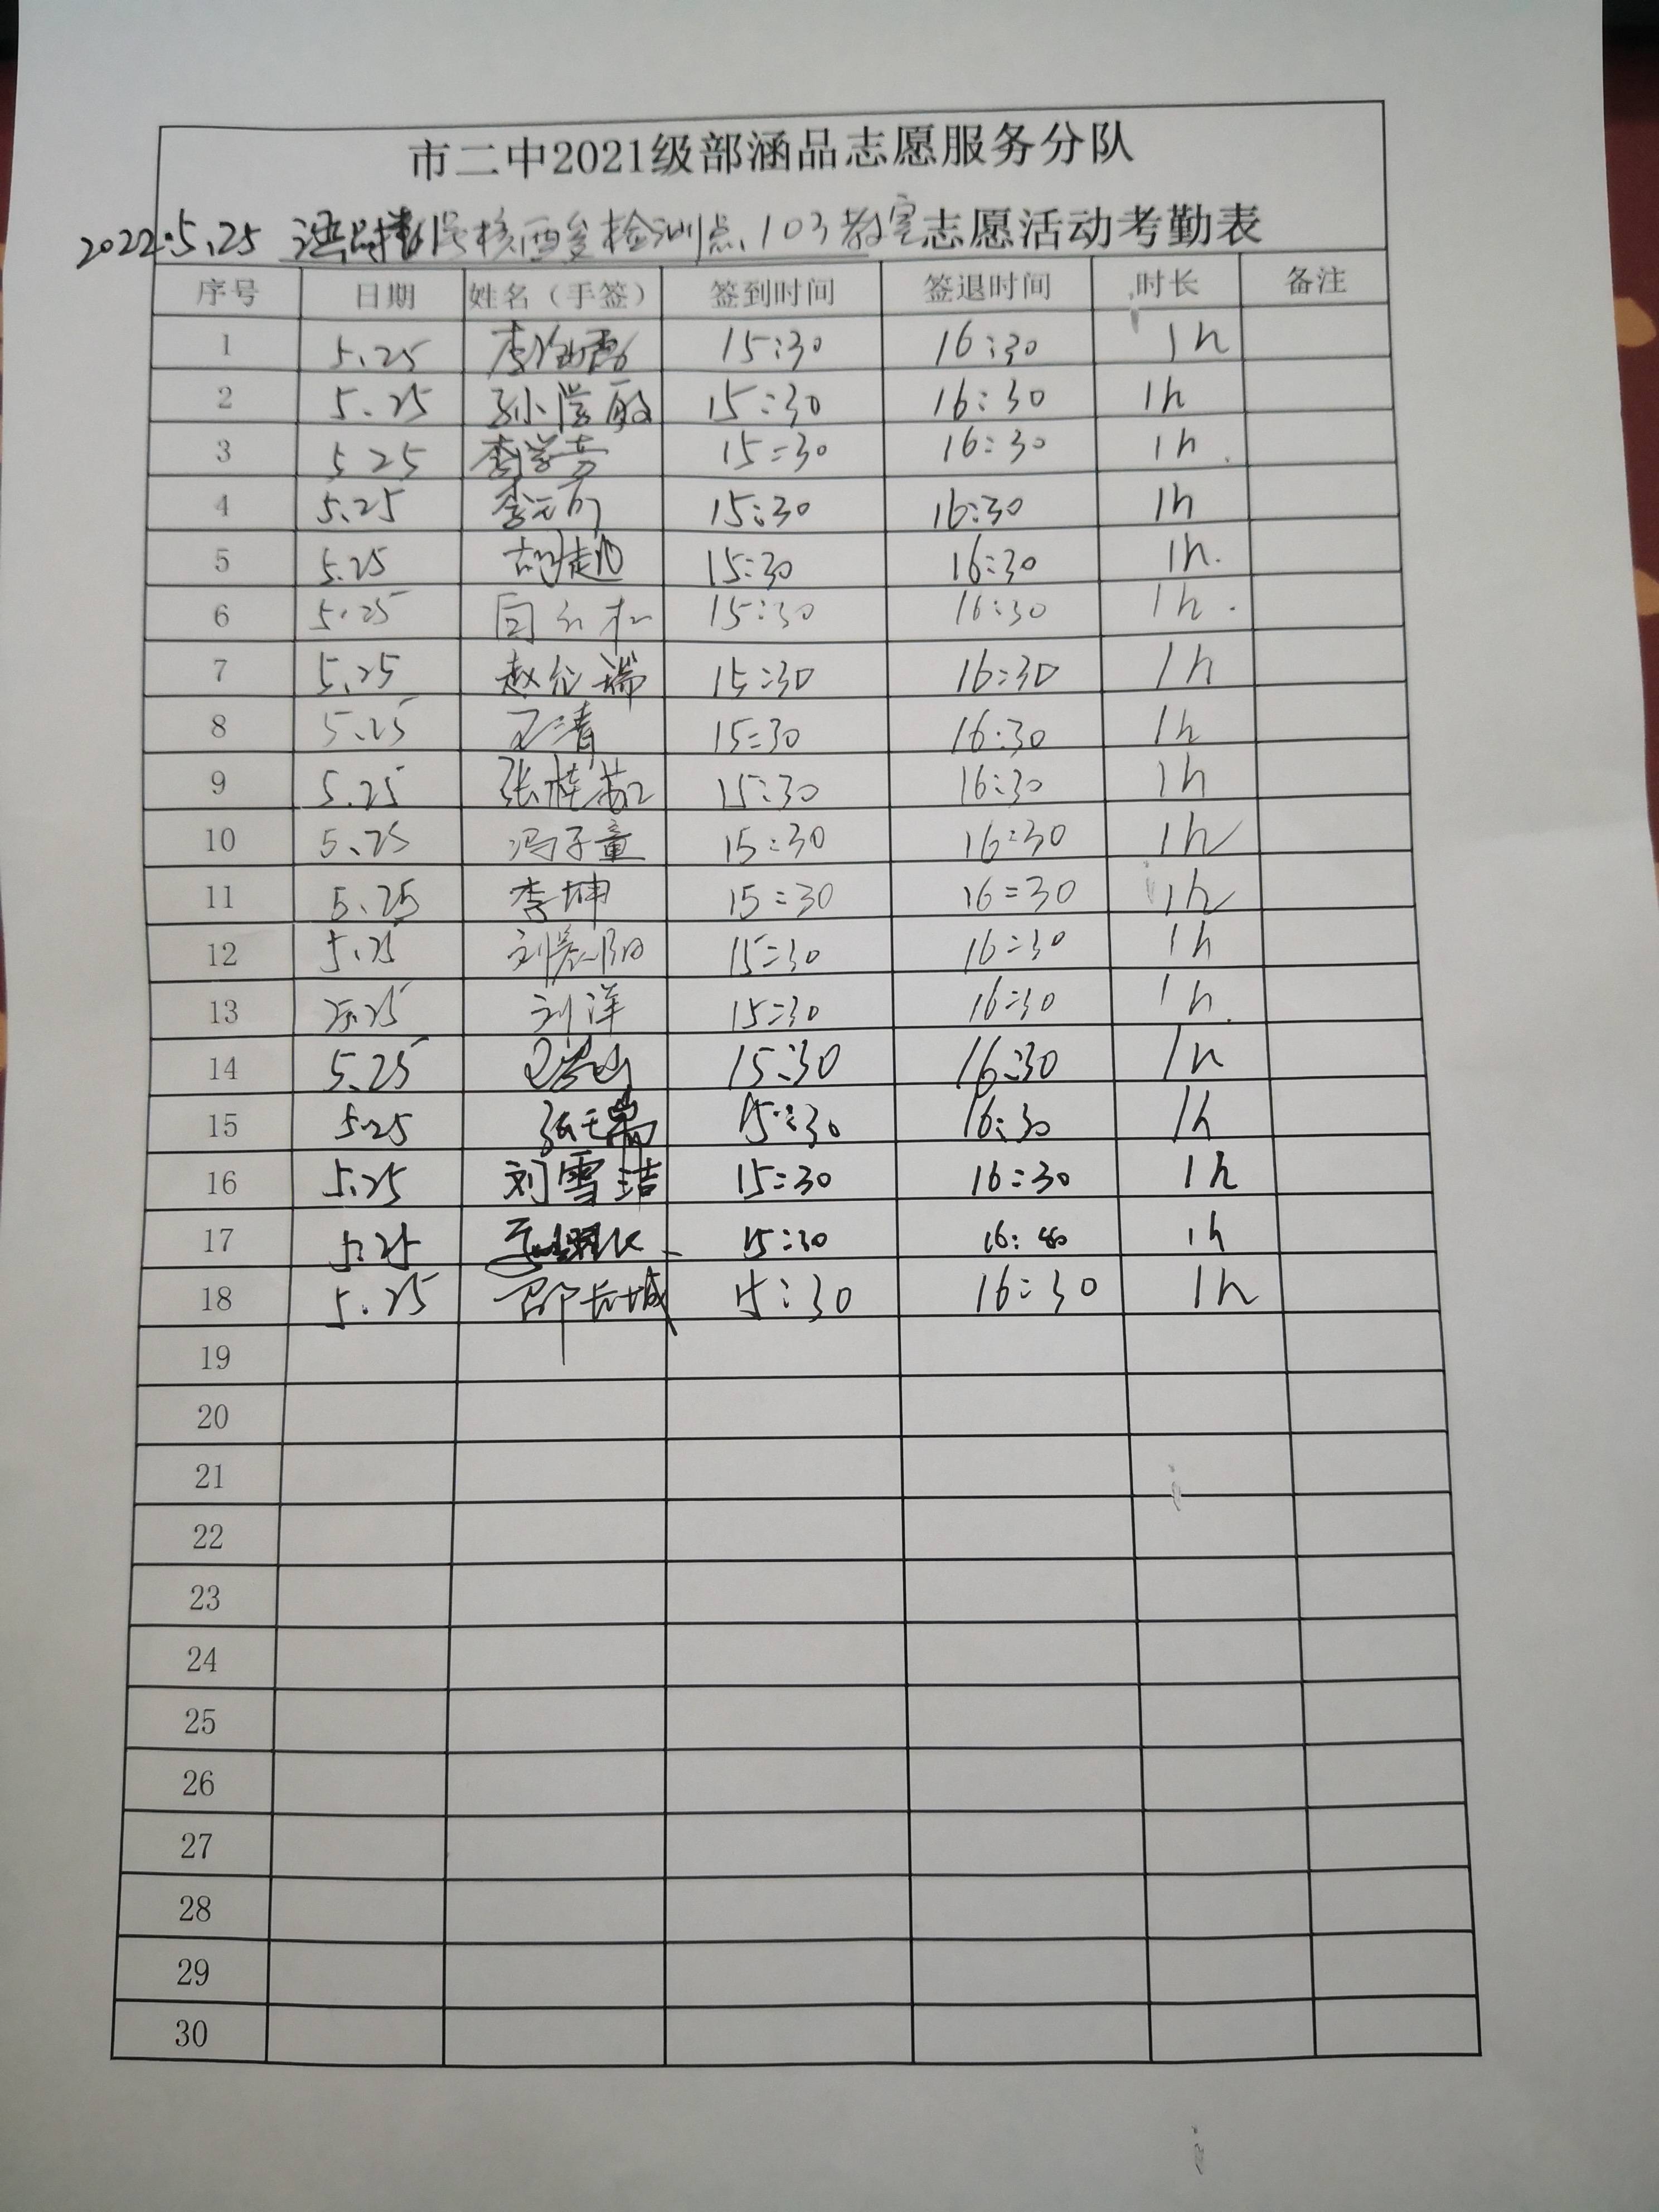 市二中2021级部涵品志愿服务分队
2022.5.25 涵品楼1号核酸检测点103教室志愿活动考勤表
序号 日期 姓名（手签） 签到时间 签退时间 时长 备注
1 5.25 15:30 16:30 1h
2 5.25 15:30 16:30 1h
3 5.25 15:30 16:30 1h
4 5.25 15:30 16:30 1h
5 5.25 胡超 15:30 16:30 1h
6 5.25 15:30 16:30 1h
7 5.25 15:30 16:30 1h
8 5.25 王清 15:30 16:30 1h
9 5.25 15:30 16:30 1h
10 5.25 冯子童 15:30 16:30 1h
11 5.25 李坤 15:30 16:30 1h
12 5.25 刘晨阳 15:30 16:30 1h
13 5.25 刘洋 15:30 16:30 1h
14 5.25 15:30 16:30 1h
15 5.25 15:30 16:30 1h
16 5.25 刘雪洁 15:30 16:30 1h
17 5.25 15:30 16: 1h
18 5.25 邵长城 15:30 16:30 1h
19
20
21
22
23
24
25
26
27
28
29
30